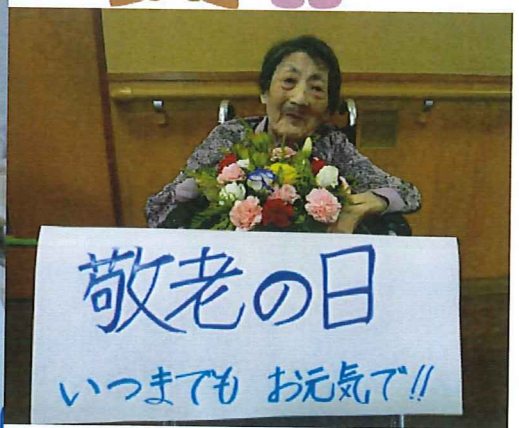 敬老の日
いつまでも お元気で!!